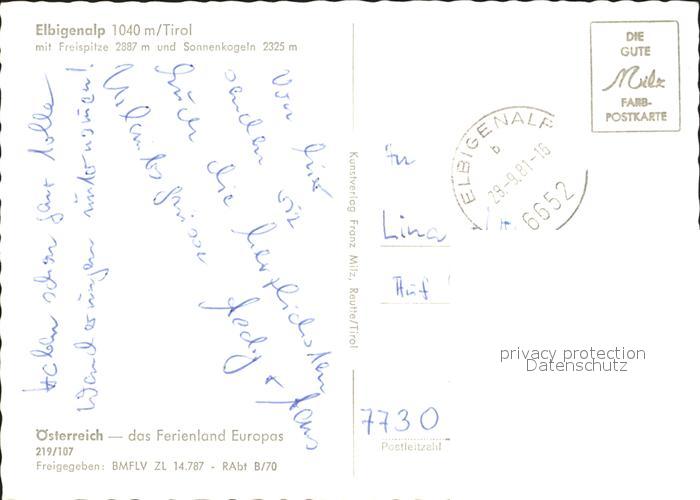 Elbigenalp 1040 m/Tirol
mit Freispitze 2887 m und Sonnenkogeln 2325 m
Von hier
senden wir
Euch die herzlichsten
Urlaubsgrüsse
Hans
Haben schon ganz tolle
Wanderungen unternommen!
Österreich — das Ferienland Europas
219/107
Freigegeben: BMFLV ZL 14.787 - RAbt B/70
Kunstverlag Franz Milz, Reutte/Tirol
DIE
GUTE
Milz
FARB-
POSTKARTE
ELBIGENALP
b
29.-9.81-16
6652
Lina
7730
Postleitzahl
privacy protection
Datenschutz